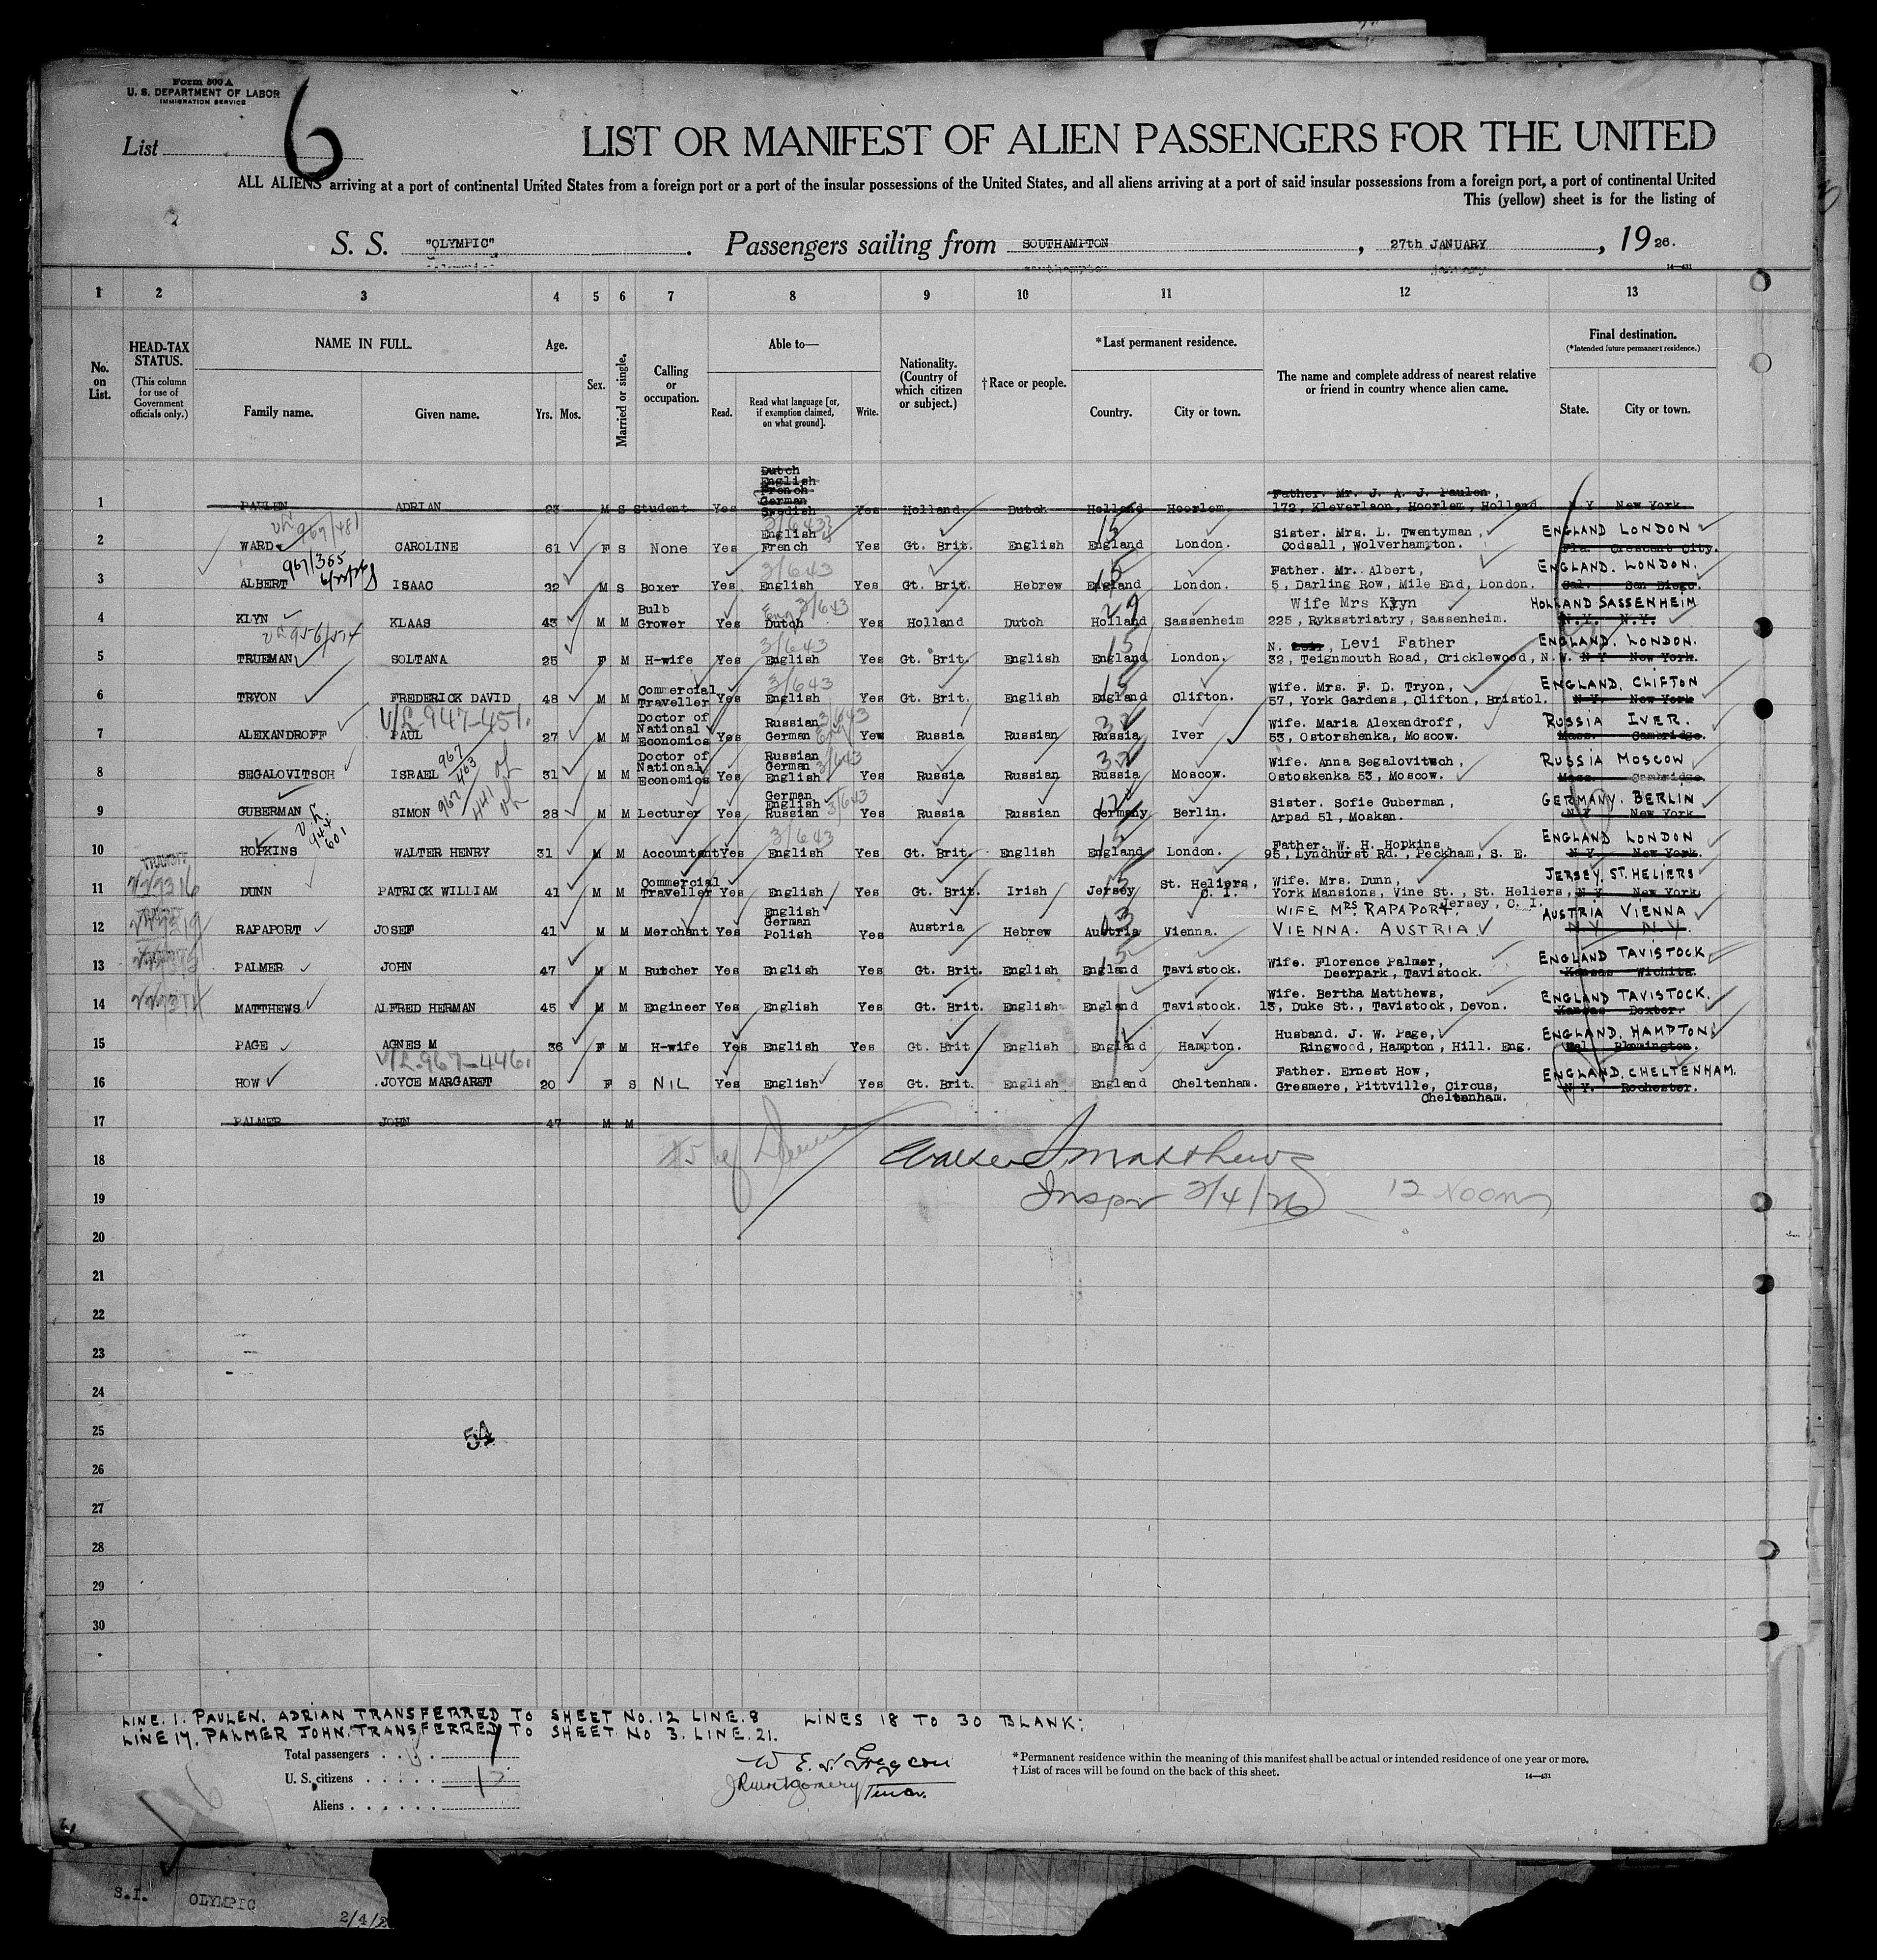 Form 500 A
U. S. DEPARTMENT OF LABOR
IMMIGRATION SERVICE
List 6
LIST OR MANIFEST OF ALIEN PASSENGERS FOR THE UNITED
ALL ALIENS arriving at a port of continental United States from a foreign port or a port of the insular possessions of the United States, and all aliens arriving at a port of said insular possessions from a foreign port, a port of continental United
This (yellow) sheet is for the listing of
S. S. "OLYMPIC". Passengers sailing from SOUTHAMPTON, 27th JANUARY, 1926.
14—431
1 2 3 4 5 6 7 8 9 10 11 12 13
No. on List.
HEAD-TAX STATUS. (This column for use of Government officials only.)
NAME IN FULL. Family name. Given name.
Age. Yrs. Mos.
Sex.
Married or single.
Calling or occupation.
Able to— Read. Read what language [or, if exemption claimed, on what ground]. Write.
Nationality. (Country of which citizen or subject.)
†Race or people.
*Last permanent residence. Country. City or town.
The name and complete address of nearest relative or friend in country whence alien came.
Final destination. (*Intended future permanent residence.) State. City or town.
1 PAULEN ADRIAN 23 M S Student Yes Dutch English French German Swedish Yes Holland Dutch Holland Hoorlem Father. Mr. J. A. J. Paulen, 172, Kleverlaan, Hoorlem, Holland N Y New York.
967/481
2 WARD CAROLINE 61 F S None Yes English French 3/643 Yes Gt. Brit. English England 15 London. Sister. Mrs. L. Twentyman, Codsall, Wolverhampton. ENGLAND LONDON Fla. Crescent City.
967/365
3 ALBERT ISAAC 22 M S Boxer Yes English 3/643 Yes Gt. Brit. Hebrew England 15 London. Father. Mr. Albert, 5, Darling Row, Mile End, London. ENGLAND. LONDON. Cal. San Diego.
4 KLYN KLAAS 43 M M Bulb Grower Yes Dutch Eng 3/643 Yes Holland Dutch Holland Sassenheim Wife Mrs Klyn 225, Ryksstriatry, Sassenheim. HOLLAND SASSENHEIM N.Y. N.Y.
956/574
5 TRUEMAN SOLTANA 25 F M H-wife Yes English 3/643 Yes Gt. Brit. English England 15 London. N. Levi Father 32, Teignmouth Road, Cricklewood, N.W. ENGLAND. LONDON. N Y New York.
6 TRYON FREDERICK DAVID 48 M M Commercial Traveller Yes English 3/643 Yes Gt. Brit. English England 15 Clifton. Wife. Mrs. F. D. Tryon, 57, York Gardens, Clifton, Bristol. ENGLAND. CLIFTON N.Y. New York
V/L 947-451.
7 ALEXANDROFF PAUL 27 M M Doctor of National Economics Yes Russian German Eng 3/643 Yew Russia Russian Russia 32 Iver Wife. Maria Alexandroff, 53, Ostorshenka, Moscow. RUSSIA IVER. Mass. Cambridge.
8 SEGALOVITSCH ISRAEL 967/463 31 M M Doctor of National Economics Yes Russian German English 3/643 Yes Russia Russian Russia 32 Moscow. Wife. Anna Segalovitsch, Ostoskenka 53, Moscow. RUSSIA MOSCOW Mass. Cambridge.
9 GUBERMAN SIMON 967/441 28 M M Lecturer Yes German English Russian 3/643 Yes Russia Russian Germany Berlin. Sister. Sofie Guberman, Arpad 51, Moskan. GERMANY. BERLIN N Y New York
944/601
10 HOPKINS WALTER HENRY 31 M M Accountant Yes English 3/643 Yes Gt. Brit. English England 15 London. Father. W. H. Hopkins, 95, Lyndhurst Rd., Peckham, S. E. ENGLAND LONDON N Y New York.
11 DUNN PATRICK WILLIAM 41 M M Commercial Traveller Yes English Yes Gt. Brit. Irish Jersey 15 St. Heliers, C. I. Wife. Mrs. Dunn, York Mansions, Vine St., St. Heliers, Jersey, C. I. JERSEY. ST. HELIERS N Y New York
12 RAPAPORT JOSEF 41 M M Merchant Yes English German Polish Yes Austria Hebrew Austria 03 Vienna. WIFE MRS. RAPAPORT. VIENNA. AUSTRIA. AUSTRIA VIENNA N Y N.Y.
13 PALMER JOHN 47 M M Butcher Yes English Yes Gt. Brit. English England 15 Tavistock. Wife. Florence Palmer, Deerpark, Tavistock. ENGLAND TAVISTOCK Kansas Wichita.
14 MATTHEWS ALFRED HERMAN 45 M M Engineer Yes English Yes Gt. Brit. English England Tavistock. Wife. Bertha Matthews, 13, Duke St., Tavistock, Devon. ENGLAND TAVISTOCK. Kansas Dexter.
15 PAGE AGNES M 36 F M H-wife Yes English Yes Gt. Brit English England Hampton. Husband. J. W. Page, Ringwood, Hampton, Hill. Eng. ENGLAND. HAMPTON Bloomington.
V/L 967-446.
16 HOW JOYCE MARGARET 20 F S NIL Yes English Yes Gt. Brit. English England Cheltenham. Father. Ernest How, Gresmere, Pittville, Circus, Cheltenham. ENGLAND. CHELTENHAM. N Y. Rochester.
17 PALMER JOHN 47 M M
18 Matthews
19 Inspr 2/4/26 12 Noon
20
21
22
23
24
25
54
26
27
28
29
30
LINE. 1. PAULEN. ADRIAN TRANSFERRED TO SHEET NO. 12 LINE. 8 LINES 18 TO 30 BLANK:
LINE 17. PALMER JOHN. TRANSFERRED TO SHEET NO 3. LINE. 21.
Total passengers
U. S. citizens
Aliens
* Permanent residence within the meaning of this manifest shall be actual or intended residence of one year or more.
† List of races will be found on the back of this sheet.
14—431
S.I. OLYMPIC
2/4/2